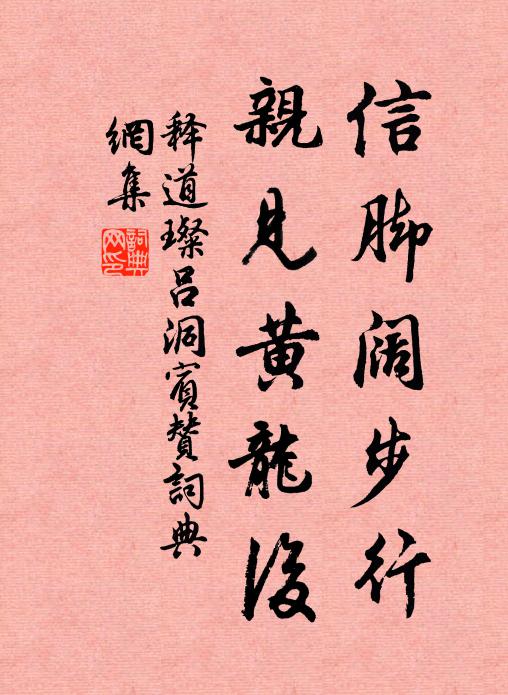 信脚阔步行
親見黄龍後
释道璨吕洞賓贊詞典
網集
詞典
网印